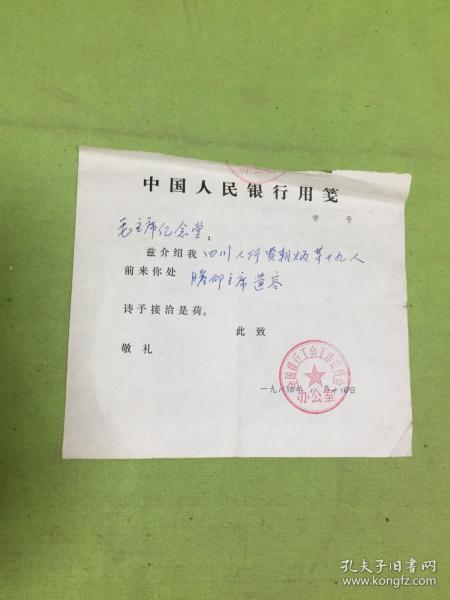 办公室
中国人民银行用笺
字 号
毛主席纪念堂：
兹介绍我四川人行贾朝炳等十九人
前来你处 瞻仰主席遗容
请予接洽是荷。
此致
敬礼
全国银行工会工作委员会
办公室
一九八四年八月十四日
孔夫子旧书网
www.kongfz.com